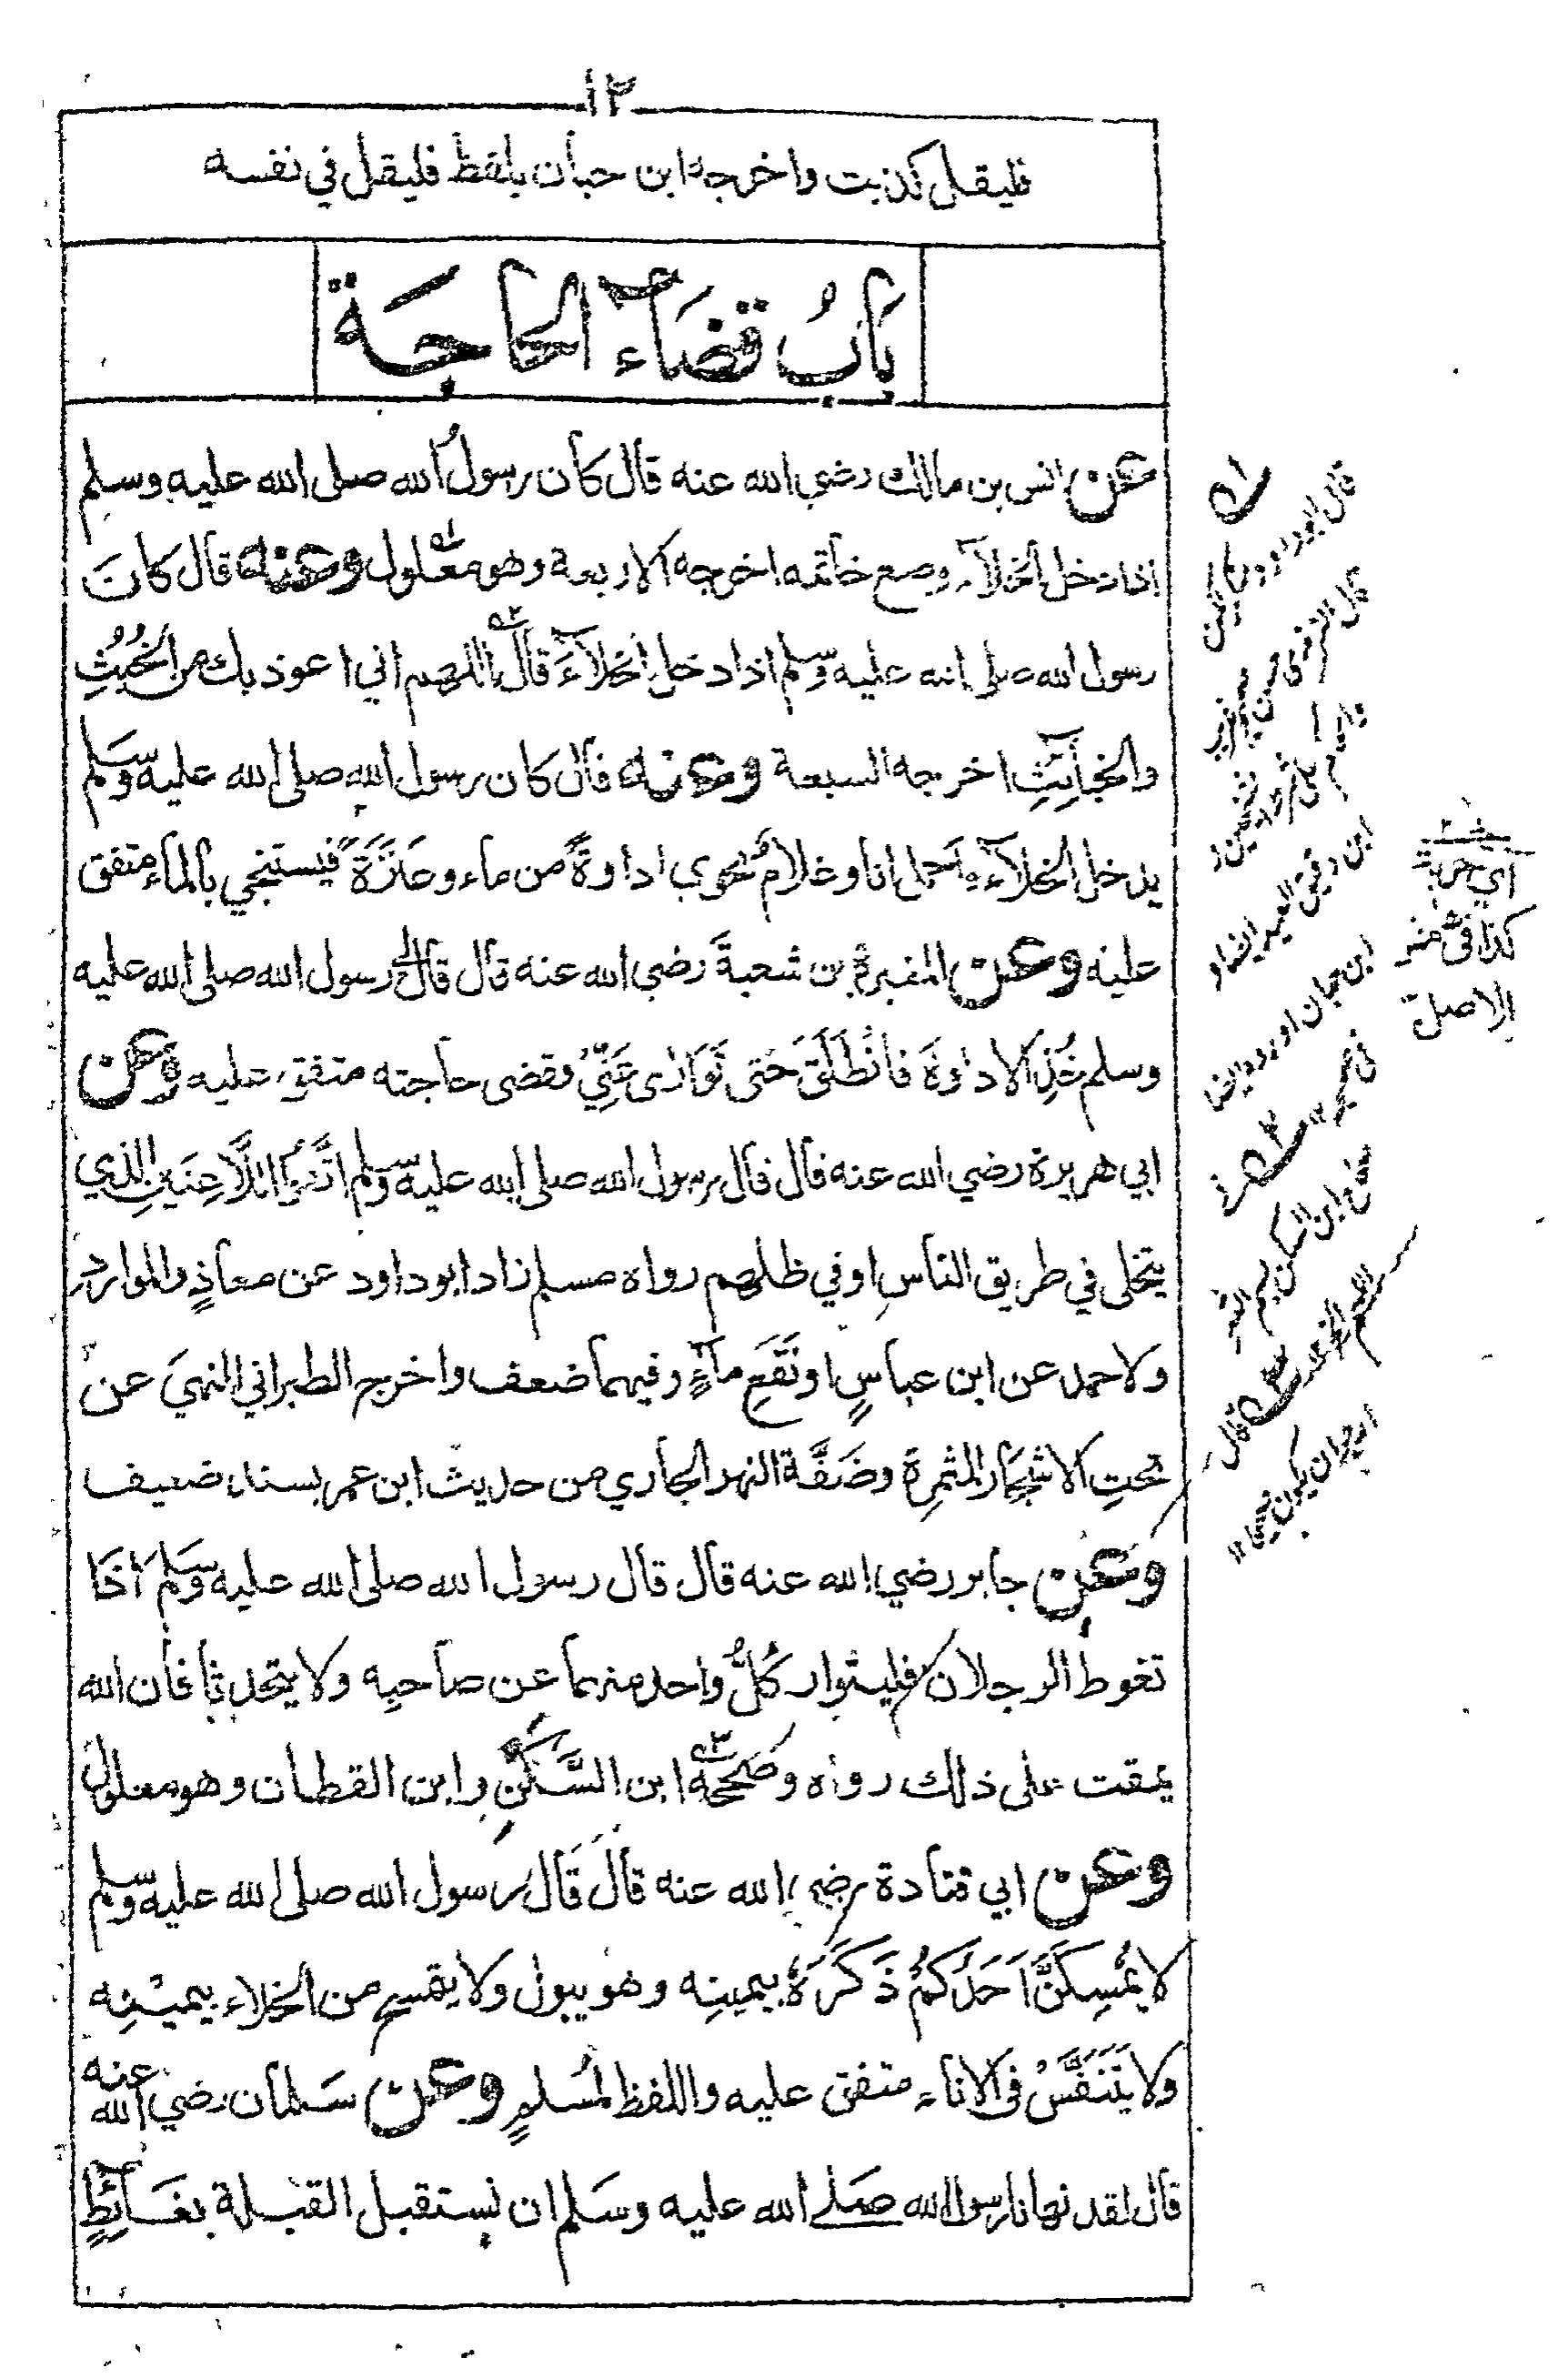 ١٢
فليقل كذبت واخرجه ابن حبان بلفظ فليقل في نفسه
بَابُ قضَاء الحاجَة
عن انس بن مالك رضي الله عنه قال كان رسولُ الله صلى الله عليه وسلم
اذا دخل الخلآء وضع خاتمه اخرجه الاربعة وهو معلول وعنه قال كانَ
رسول الله صلى الله عليه وسلم اذا دخل الخلآءَ قال اللهم اني اعوذ بك من الخُبُثِ
والخبآئِثِ اخرجه السبعة وعنه قال كان رسول الله صلى الله عليه وسلم
يدخل الخلآء فاحمل انا وغلامٌ نحوي اداوةً من ماء وعَنَزَةً فيستنجي بالماء متفق
عليه وعن المغيرة بن شعبةَ رضي الله عنه قال قال لي رسول الله صلى الله عليه
وسلم خُذِ الاداوَةَ فانْطَلَقَ حَتى تَوَارى عَنِّي فقضى حاجته متفق عليه وعن
ابي هريرة رضي الله عنه قال قال رسول الله صلى الله عليه وسلم اتَّقوا اللَّاعِنَينِ الذي
يتخلى في طريق الناسِ او في ظلهم رواه مسلم زاد ابو داود عن معاذٍ والموارد
ولاحمد عن ابن عباسٍ او نَقْعِ مآءٍ وفيهما ضعف واخرج الطبراني النهيَ عن
تحتِ الاشجار المثمرة وضَفَّة النهر الجاري من حديث ابن عمر بسند ضعيف
وعن جابر رضي الله عنه قال قال رسول الله صلى الله عليه وسلم اذا
تغوط الرجلان فليتوار كلُّ واحد منهما عن صاحبِه ولا يتحدثا فان الله
يمقت على ذلك رواه وصححه ابن السَّكَنِ وابن القطان وهو معلول
وعن ابي قتادة رضي الله عنه قالَ قَال رسول الله صلى الله عليه وسلم
لا يمْسِكَنَّ اَحَدُكمْ ذَكَرَهُ بيمينِه وهو يبول ولا يتمسح من الخلاء بيمينِه
ولا يَتَنَفَّسْ في الاناء متفق عليه واللفظ لمُسلمٍ وعن سَلمان رضي الله عنه
قال لقد نهانا رسول الله صَلى الله عليه وسَلم ان نستقبل القبلة بغَآئِطٍ
اي حربة
كذا في
الاصل